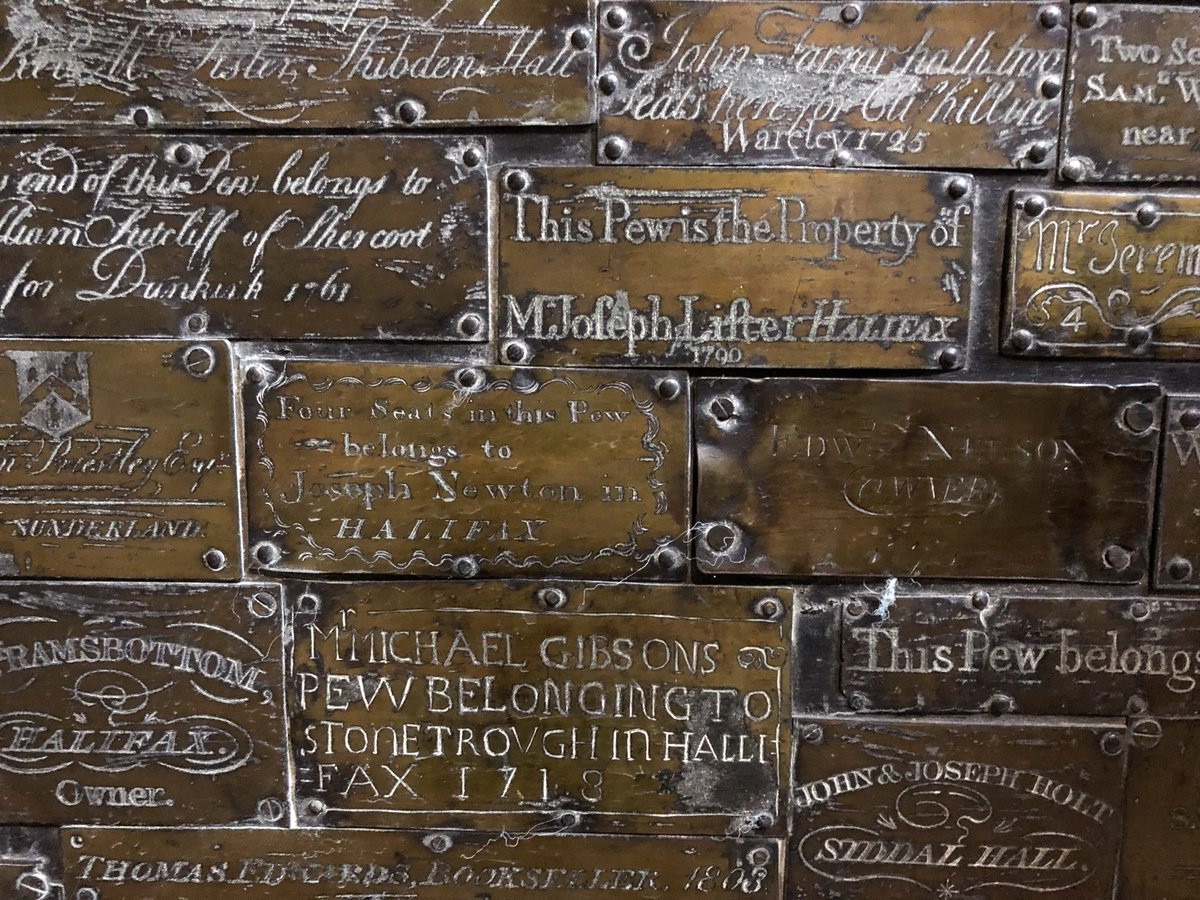 Lister, Shibden Hall
John Farrar hath two
Seats here for
Warcley 1725
Two
SAM.
near
end of this Pew belongs to
Sutcliff of Shercoat
for Dunkirk 1761
This Pew is the Property of
Mr Joſeph Liſter HALIFAX
1790
Mr Jerem
54
Priestley Esqr
SUNDERLAND.
Four Seats in this Pew
belongs to
Joseph Newton in
HALIFAX
EDWD NELSON
OWNER
RAMSBOTTOM,
HALIFAX.
Owner.
Mr MICHAEL GIBSONS
PEW BELONGING TO
STONETROUGH IN HALLI-
-FAX 1718
This Pew belongs
JOHN & JOSEPH HOLT
SIDDAL HALL.
THOMAS EDWARDS, BOOKSELLER, 1803